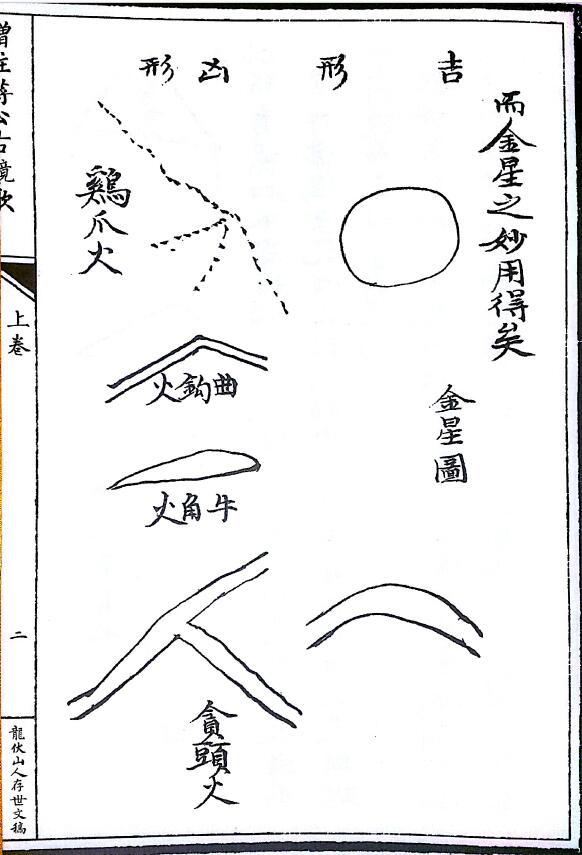 而金星之妙用得矣
吉形
金星圖
凶形
鷄爪火
曲鈎火
牛角火
貪頭火
增註蔣公古鏡歌
上卷
二
龍伏山人存世文稿